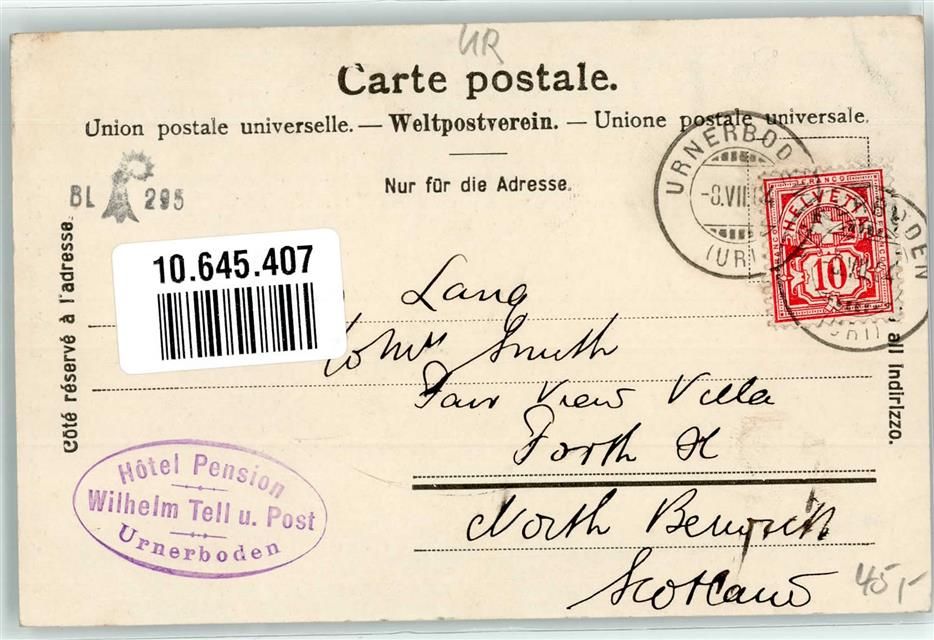 UR
Carte postale.
Union postale universelle. — Weltpostverein. — Unione postale universale.
Nur für die Adresse.
BL 295
Côté réservé à l'adresse.
all indirizzo.
10.645.407
URNERBOD
-8.VII.04
(URI)
FRANCO
HELVETIA
10
RBODEN
(URI)
Lang
Smith
Fair View Villa
Forth St
North Berwick
Scotland
Hôtel Pension
Wilhelm Tell u. Post
Urnerboden
45,-